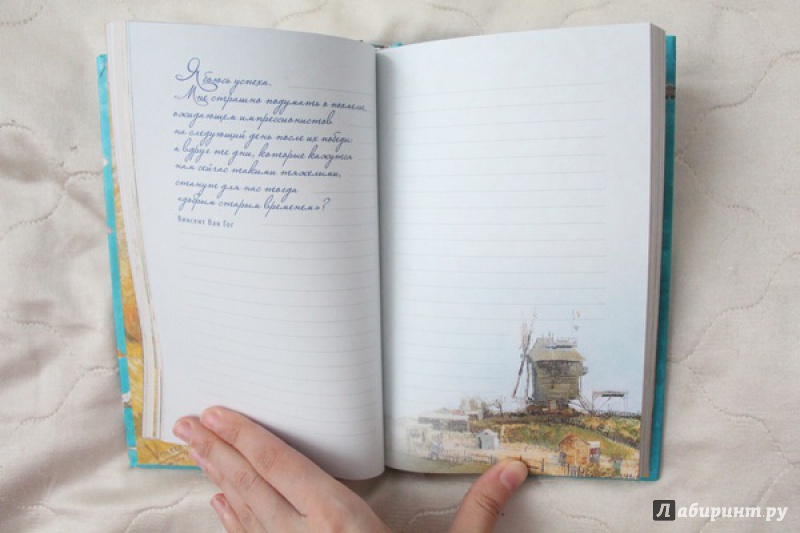 Я боюсь успеха.
Мне страшно подумать о похмелье,
ожидающем импрессионистов
на следующий день после их победы:
а вдруг те дни, которые кажутся
нам сейчас такими тяжелыми,
станут для нас тогда
«добрым старым временем»?
Винсент Ван Гог
Лабиринт.ру